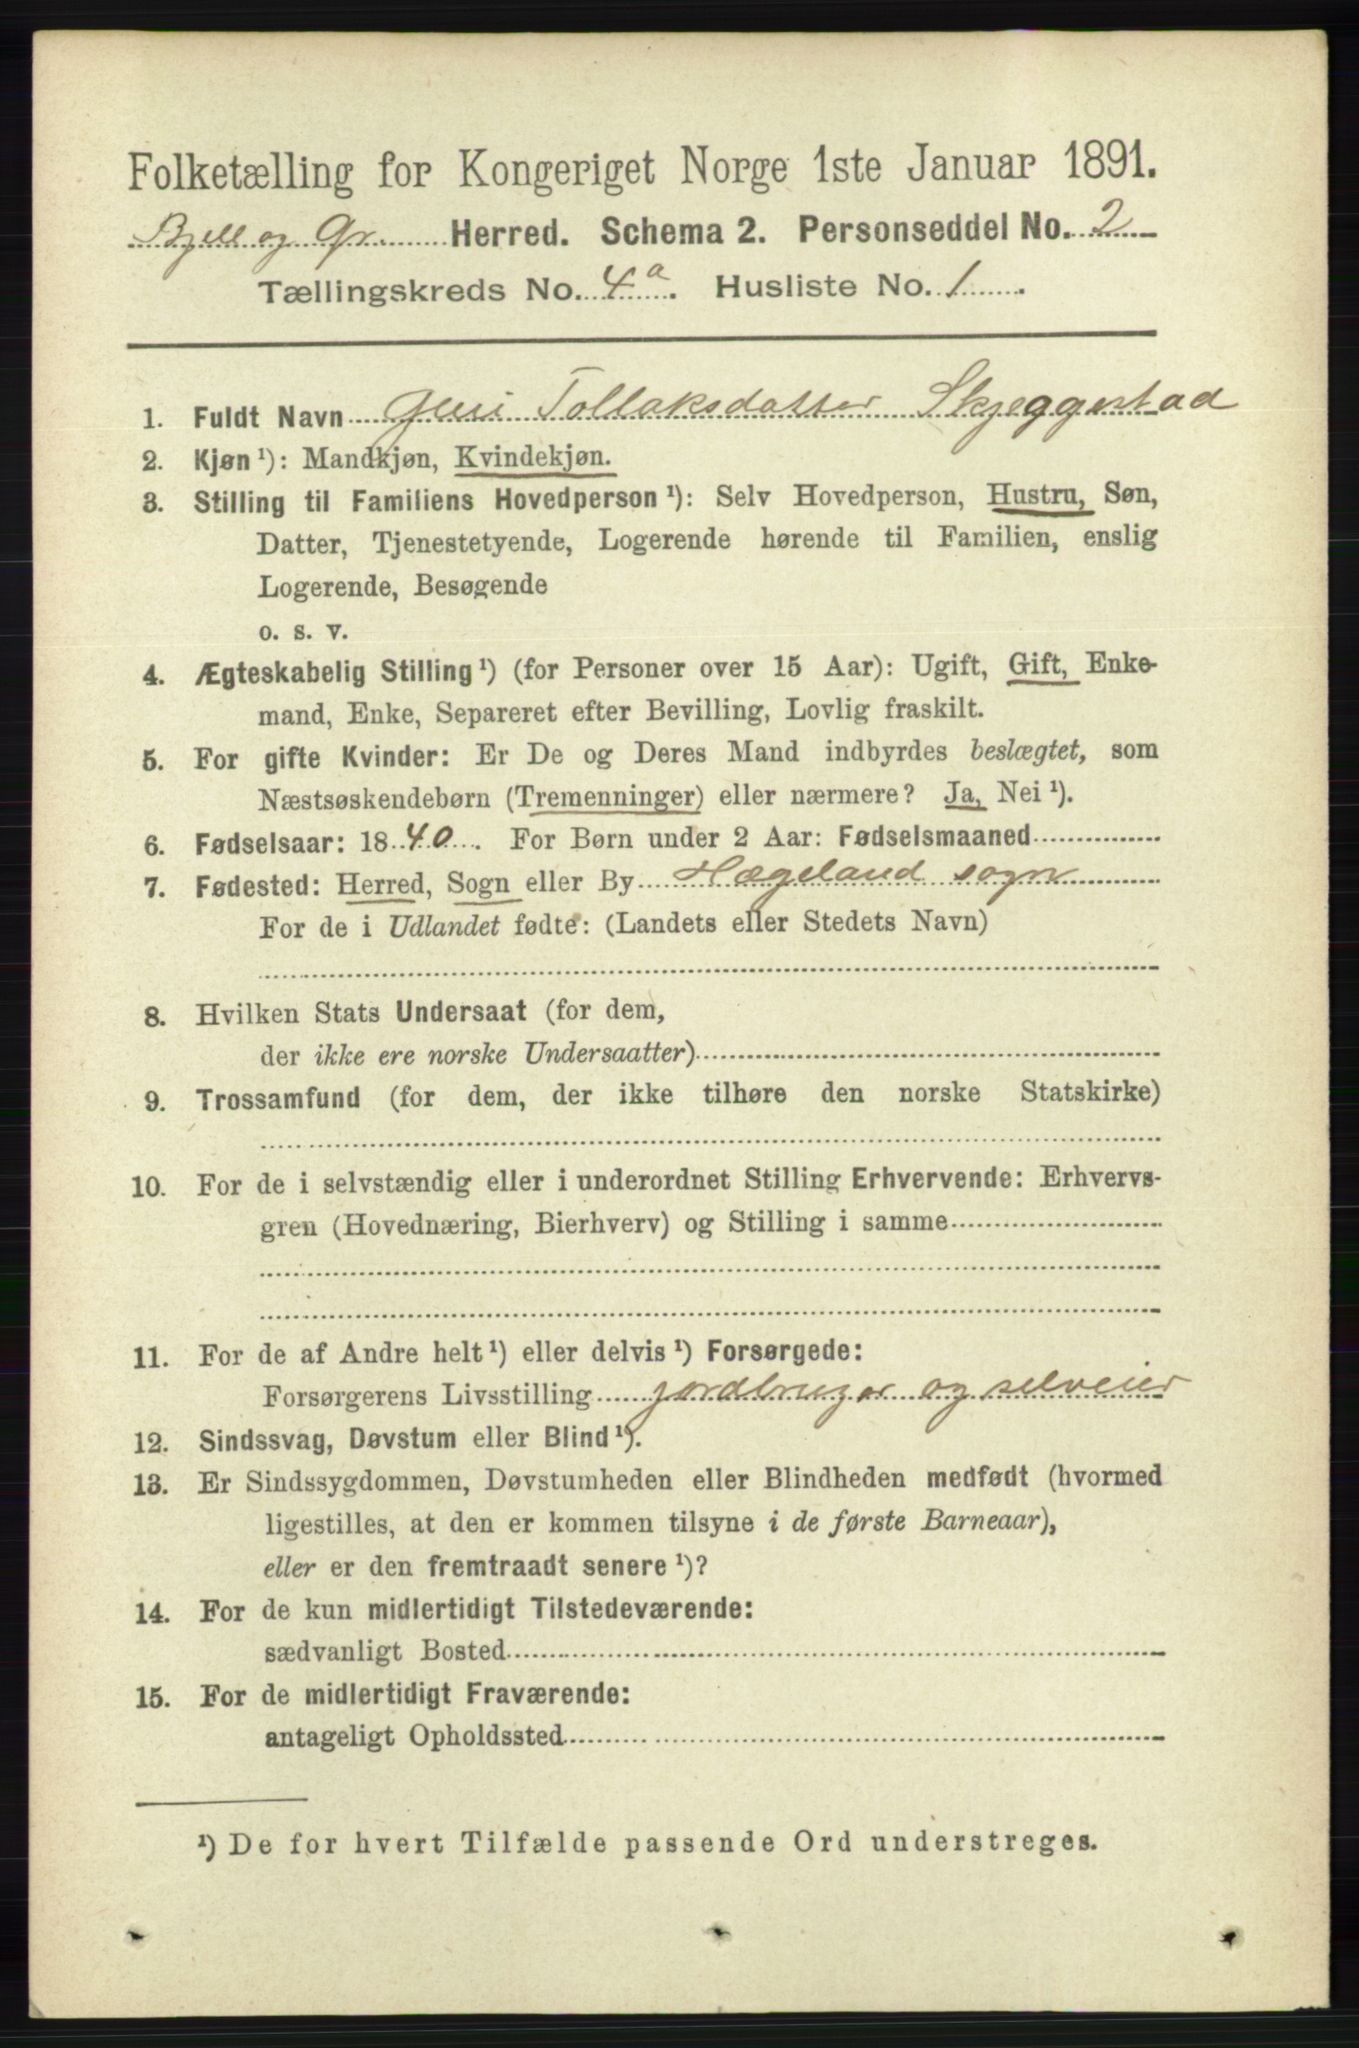 Folketælling for Kongeriget Norge 1ste Januar 1891.
Bjell og Gr. Herred. Schema 2. Personseddel No. 2
Tællingskreds No. 4a. Husliste No. 1.
1. Fuldt Navn Guri Tollaksdatter Skjeggestad
2. Kjøn ¹): Mandkjøn, Kvindekjøn.
3. Stilling til Familiens Hovedperson ¹): Selv Hovedperson, Hustru, Søn,
Datter, Tjenestetyende, Logerende hørende til Familien, enslig
Logerende, Besøgende
o. s. v.
4. Ægteskabelig Stilling ¹) (for Personer over 15 Aar): Ugift, Gift, Enke-
mand, Enke, Separeret efter Bevilling, Lovlig fraskilt.
5. For gifte Kvinder: Er De og Deres Mand indbyrdes beslægtet, som
Næstsøskendebørn (Tremenninger) eller nærmere? Ja, Nei ¹).
6. Fødselsaar: 1840. For Børn under 2 Aar: Fødselsmaaned
7. Fødested: Herred, Sogn eller By Hægeland sogn
For de i Udlandet fødte: (Landets eller Stedets Navn)
8. Hvilken Stats Undersaat (for dem,
der ikke ere norske Undersaatter)
9. Trossamfund (for dem, der ikke tilhøre den norske Statskirke)
10. For de i selvstændig eller i underordnet Stilling Erhvervende: Erhvervs-
gren (Hovednæring, Bierhverv) og Stilling i samme
11. For de af Andre helt ¹) eller delvis ¹) Forsørgede:
Forsørgerens Livsstilling jordbruger og selveier
12. Sindssvag, Døvstum eller Blind ¹).
13. Er Sindssygdommen, Døvstumheden eller Blindheden medfødt (hvormed
ligestilles, at den er kommen tilsyne i de første Barneaar),
eller er den fremtraadt senere ¹)?
14. For de kun midlertidigt Tilstedeværende:
sædvanligt Bosted
15. For de midlertidigt Fraværende:
antageligt Opholdssted
¹) De for hvert Tilfælde passende Ord understreges.